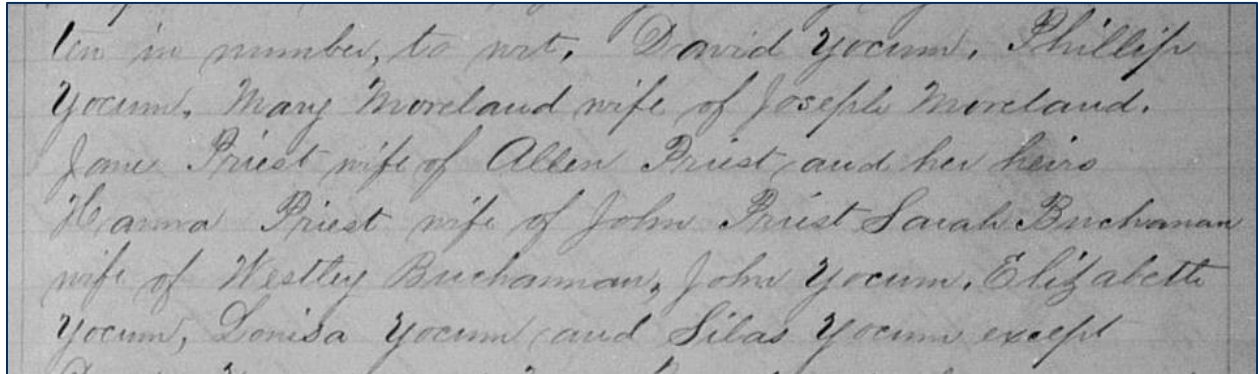 ten in number, to wit, David Yocum, Phillip
Yocum, Mary Moreland wife of Joseph Moreland.
Jane Priest wife of Allen Priest and her heirs
Hanna Priest wife of John Priest Sarah Buchanan
wife of Westley Buchannan, John Yocum, Elizabeth
Yocum, Lonisa Yocum and Silas Yocum except